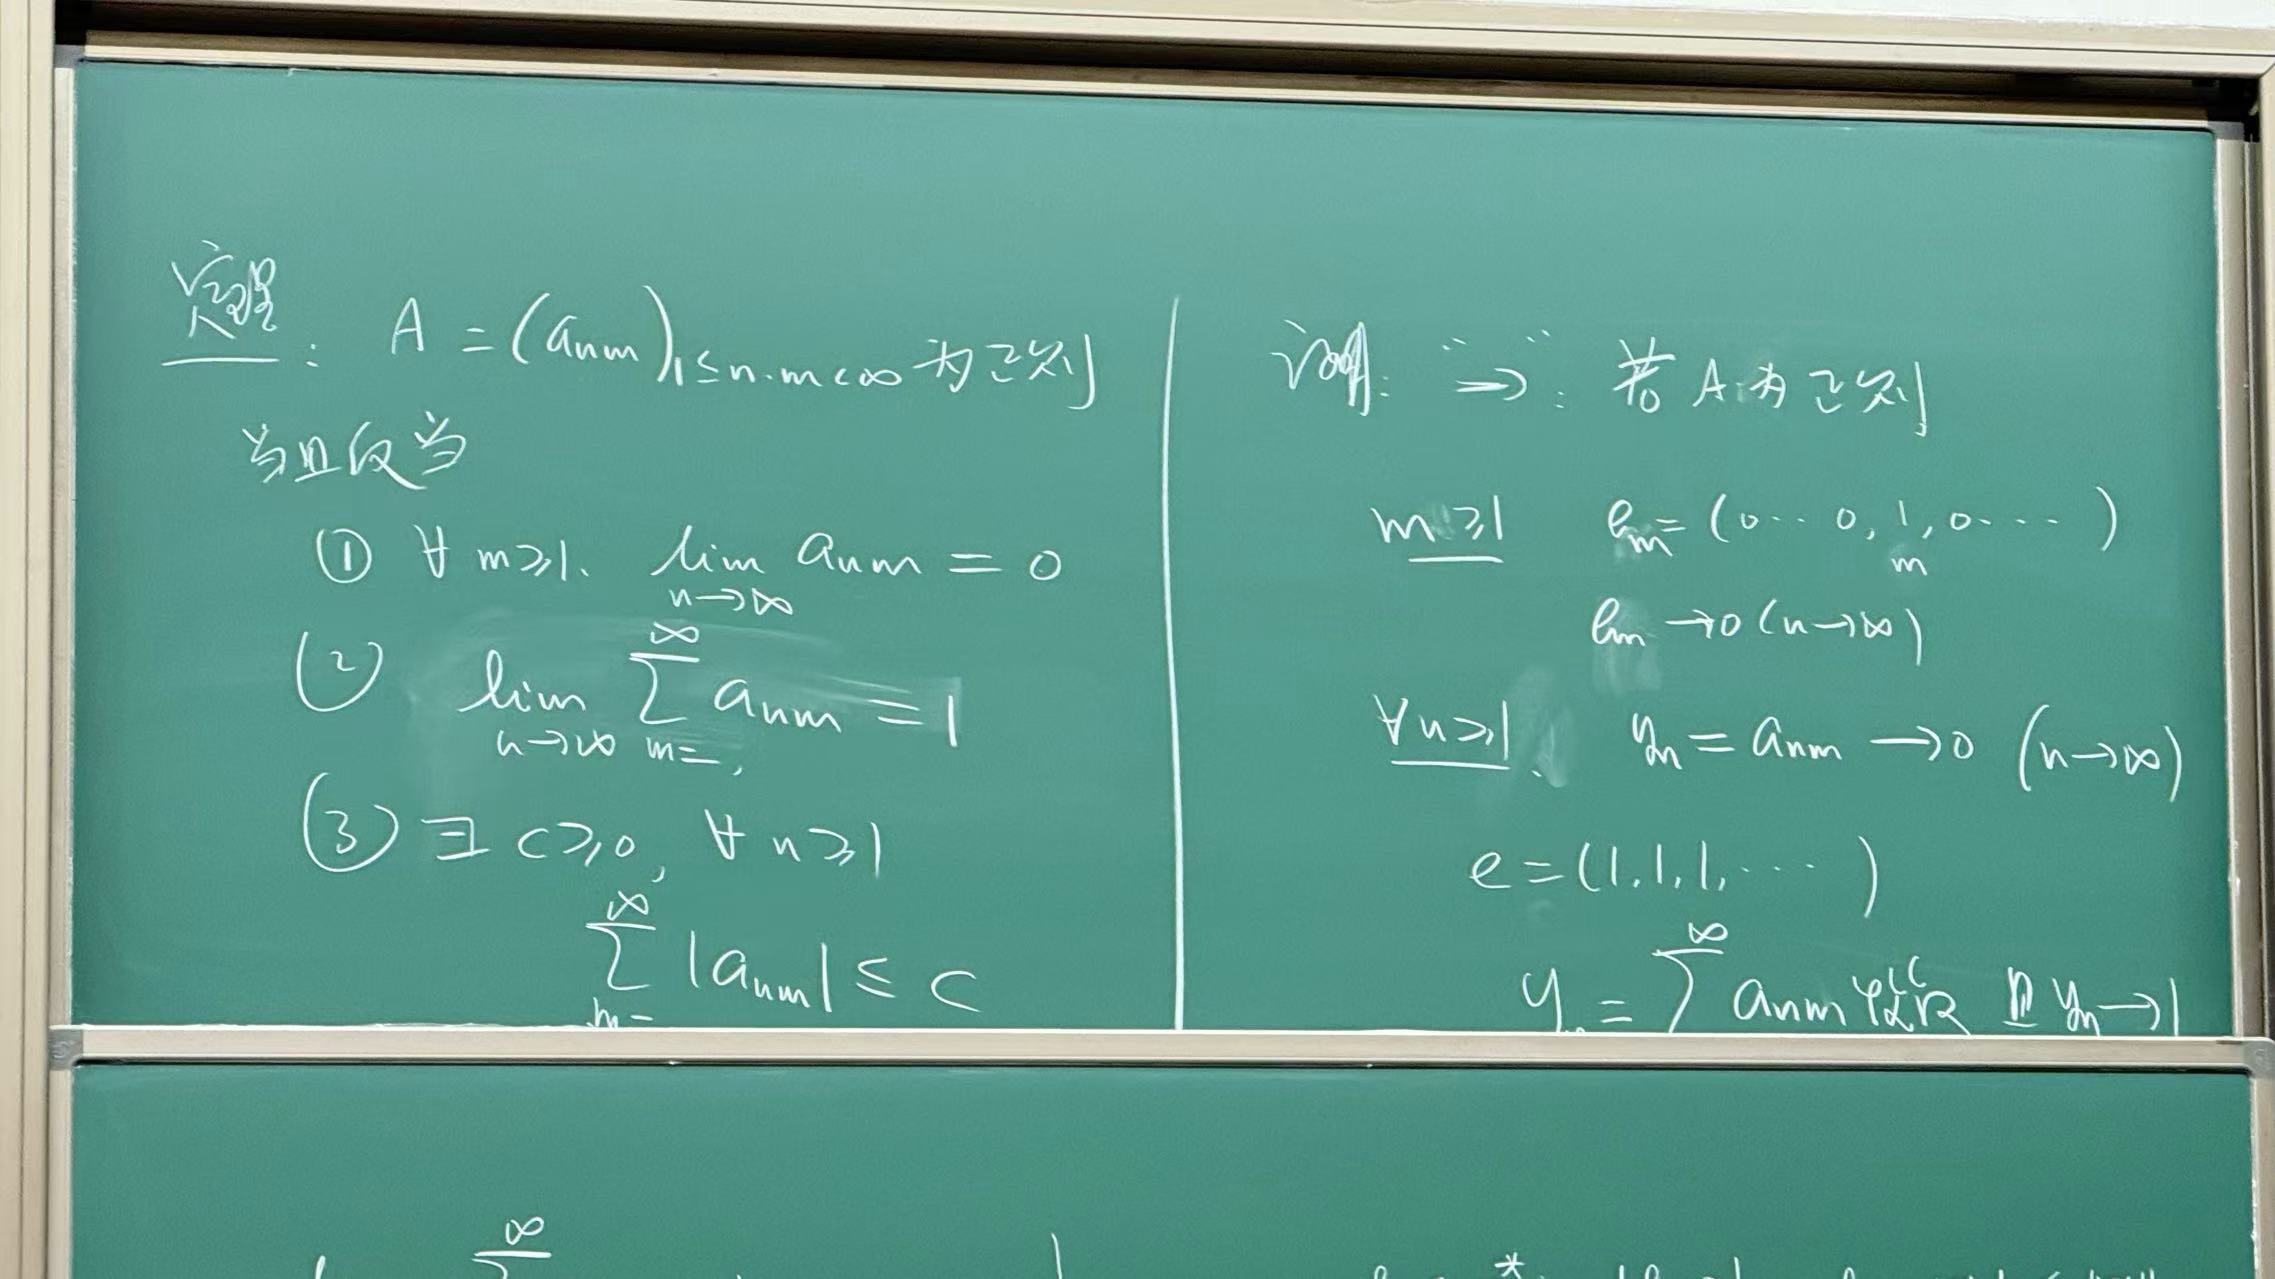 定理: A = (a_{nm})_{1≤n.m<∞} 为正则
当且仅当
① ∀ m≥1. lim_{n→∞} a_{nm} = 0
(2) lim_{n→∞} ∑_{m=1}^{∞} a_{nm} = 1
(3) ∃ c≥0, ∀ n≥1
∑_{m=}^{∞} |a_{nm}| ≤ c
证明: "⇒": 若 A 为正则
m≥1 e_m = (0⋯0, 1, 0⋯)
m
e_m → 0 (n→∞)
∀n≥1. y_n = a_{nm} → 0 (n→∞)
e = (1,1,1,⋯)
y_n = ∑^{∞} a_{nm} 收敛 且 y_n → 1